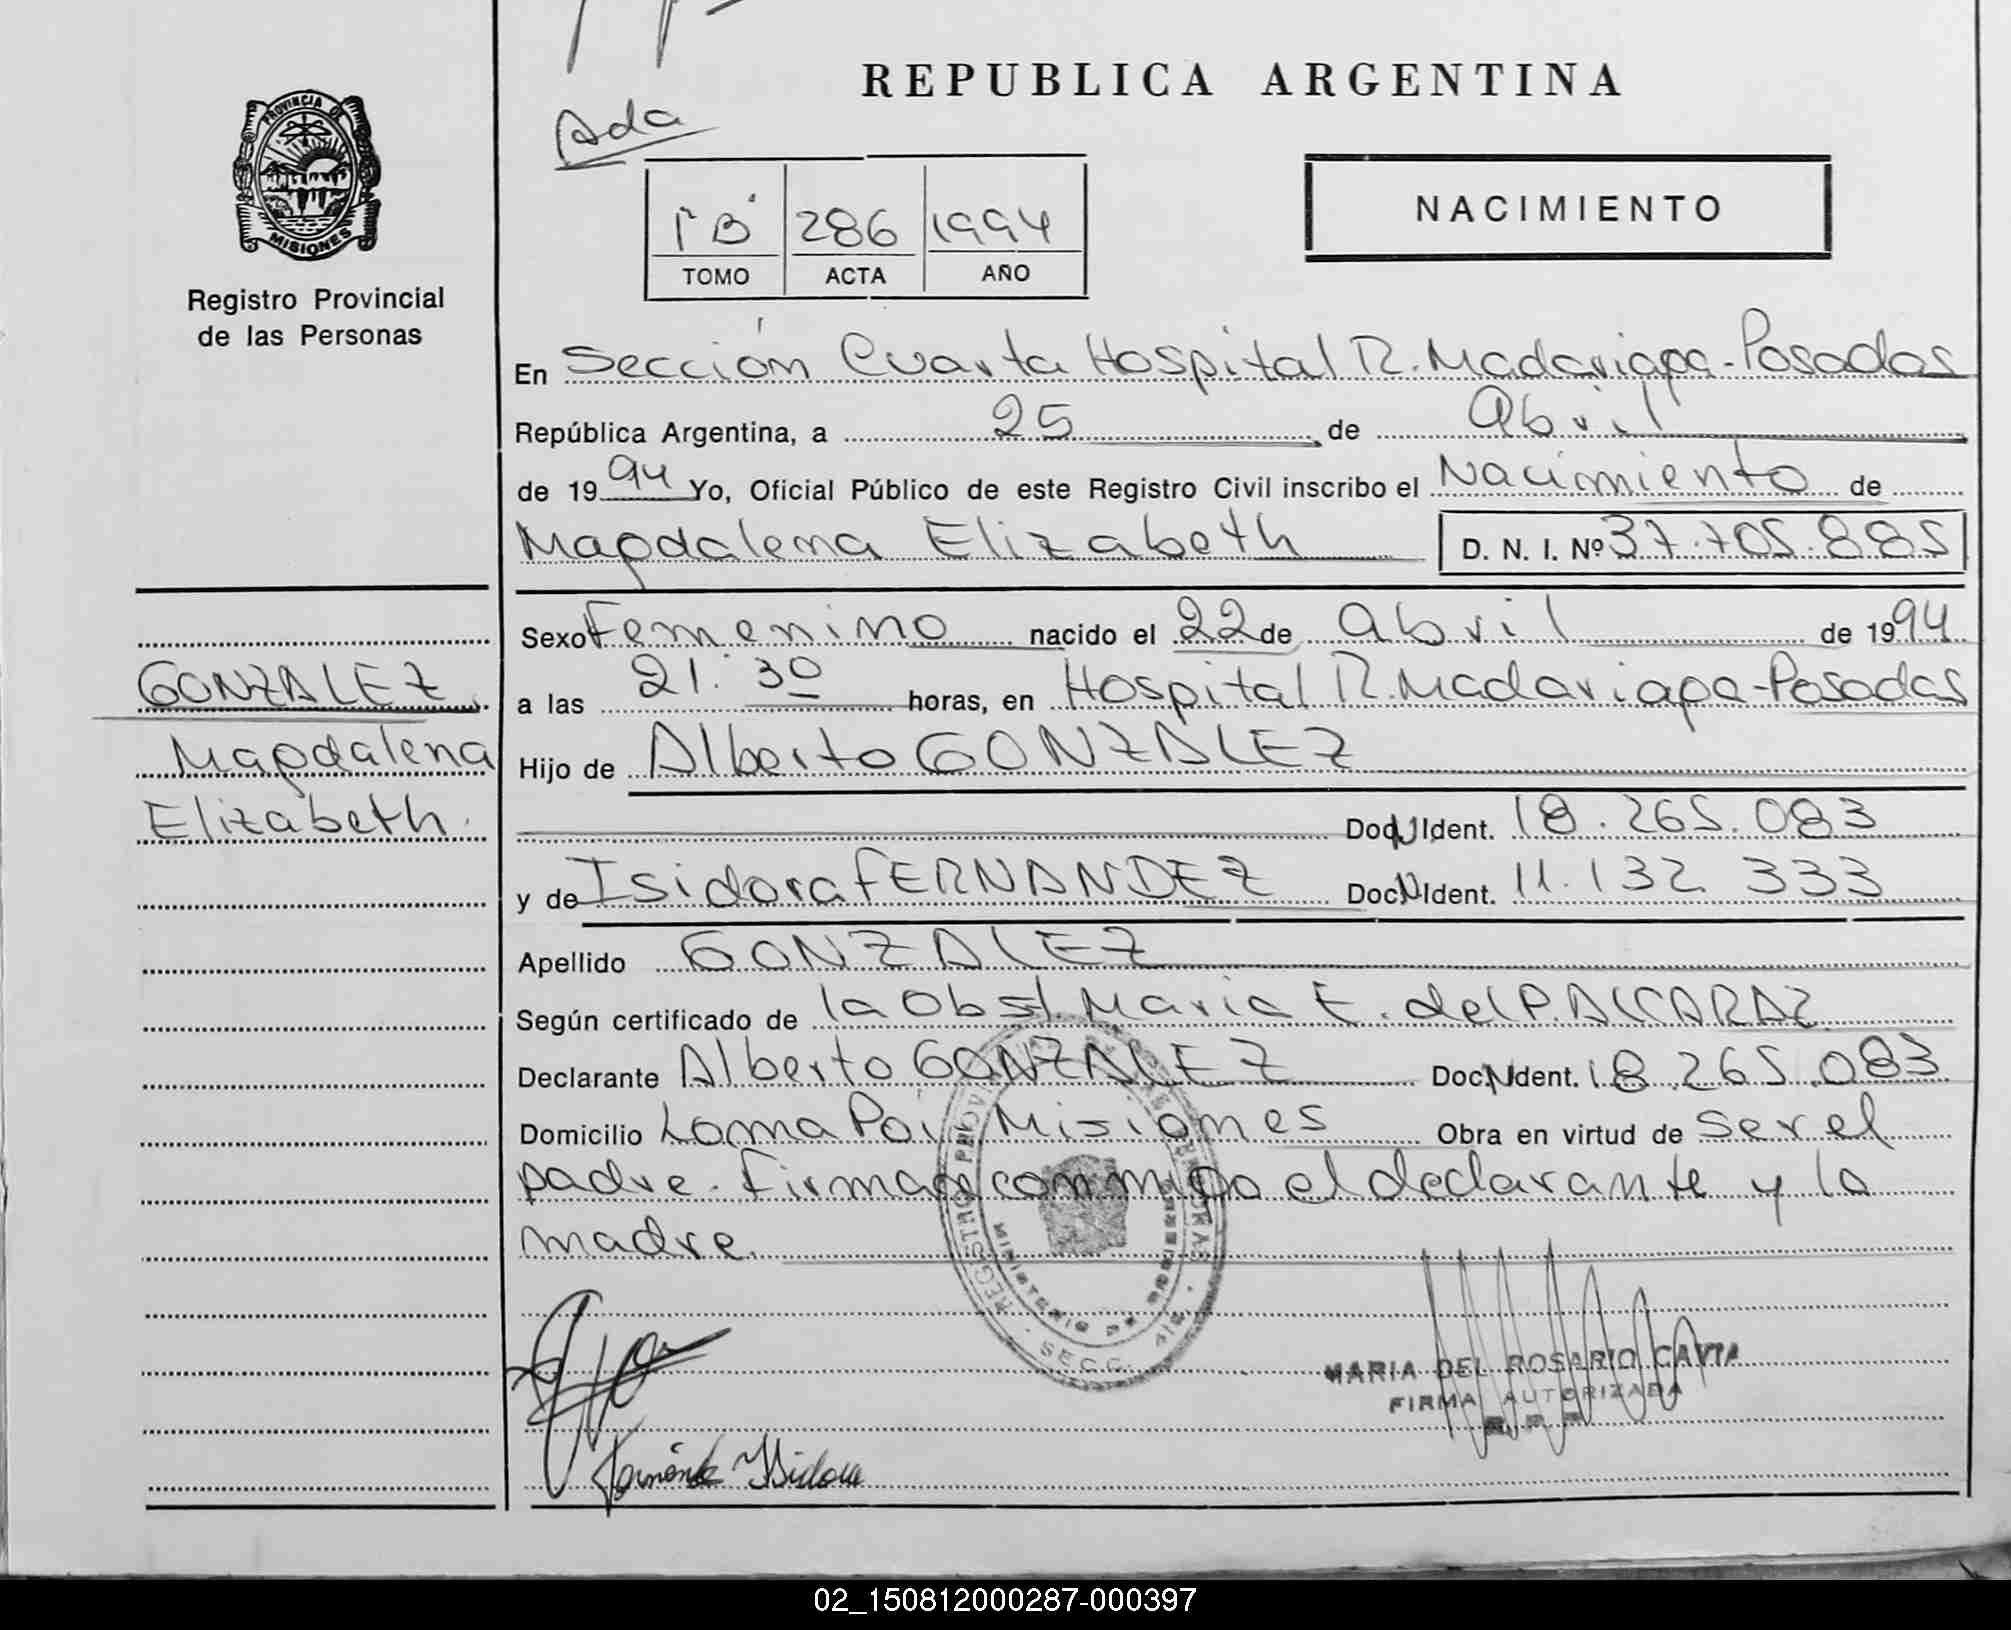 REPUBLICA ARGENTINA
Ada
PROVINCIA DE
MISIONES
Registro Provincial
de las Personas
1º"B" 286 1994
TOMO ACTA AÑO
NACIMIENTO
En Sección Cuarta Hospital R. Madariaga-Posadas
República Argentina, a 25 de abril
de 1994 Yo, Oficial Público de este Registro Civil inscribo el Nacimiento de
Magdalena Elizabeth D. N. I. Nº 37.705.885
Sexo Femenino nacido el 22 de abril de 1994
GONZALEZ
a las 21:30 horas, en Hospital R. Madariaga-Posadas
Magdalena
Hijo de Alberto GONZALEZ
Elizabeth.
Doc.N.Ident. 18.265.083
y de Isidora FERNANDEZ Doc.N.Ident. 11.132.333
Apellido GONZALEZ
Según certificado de la Obst. Maria E. del P. ALCARAZ
Declarante Alberto GONZALEZ Doc.N.Ident. 18.265.083
Domicilio Loma Poi Misiones Obra en virtud de ser el
padre. Firman conmigo el declarante y la
madre.
REGISTRO PROVINCIAL DE LAS PERSONAS
MINISTERIO DE
SECC.
MARIA DEL ROSARIO CAVIA
FIRMA AUTORIZADA
Isidora
02_150812000287-000397